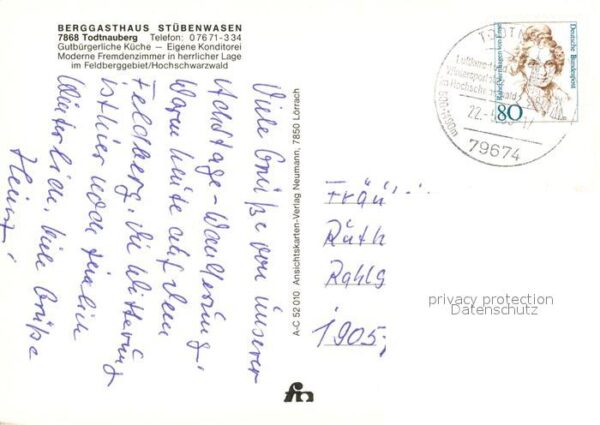 BERGGASTHAUS STÜBENWASEN
7868 Todtnauberg Telefon: 07671-334
Gutbürgerliche Küche — Eigene Konditorei
Moderne Fremdenzimmer in herrlicher Lage
im Feldberggebiet/Hochschwarzwald
Viele Grüße von unserer
Achttage-Wanderung,
Waren heute auf dem
Feldberg, die Witterung
ist hier noch ziemlich
Winterlich, viele Grüße
Heinz
A-C 52 010 Ansichtskarten-Verlag Neumann, 7850 Lörrach
TODTNAU
79674
Deutsche Bundespost
Rahel Varnhagen von Ense
80
Frau
Ruth
Rahlg
1905,
privacy protection
Datenschutz